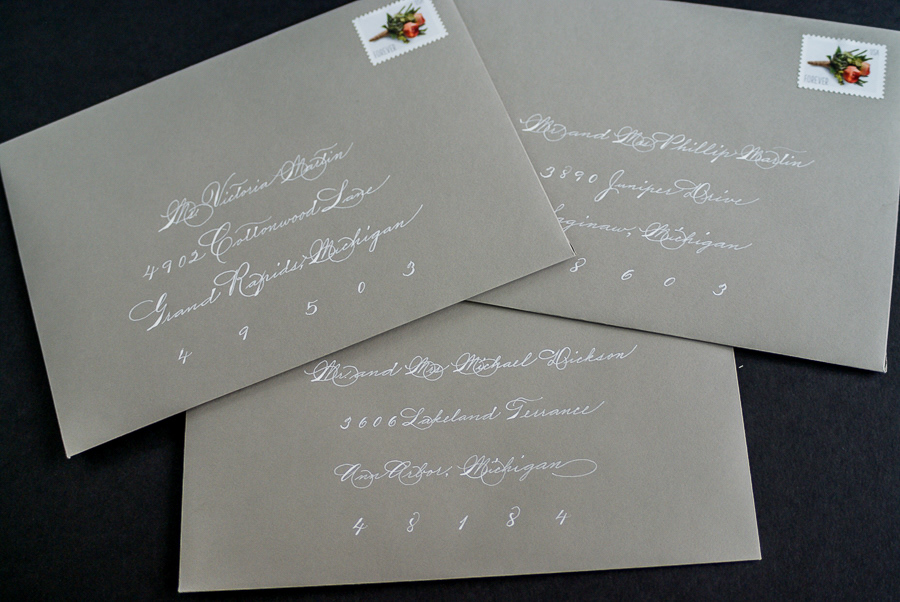 FOREVER
Ms Victoria Martin
4902 Cottonwood Lane
Grand Rapids, Michigan
4 9 5 0 3
FOREVER USA
Mr and Mrs Phillip Martin
3890 Juniper Drive
aginaw, Michigan
8 6 0 3
Mr and Mrs Michael Dickson
3606 Lakeland Terrance
Ann Arbor, Michigan
4 8 1 8 4